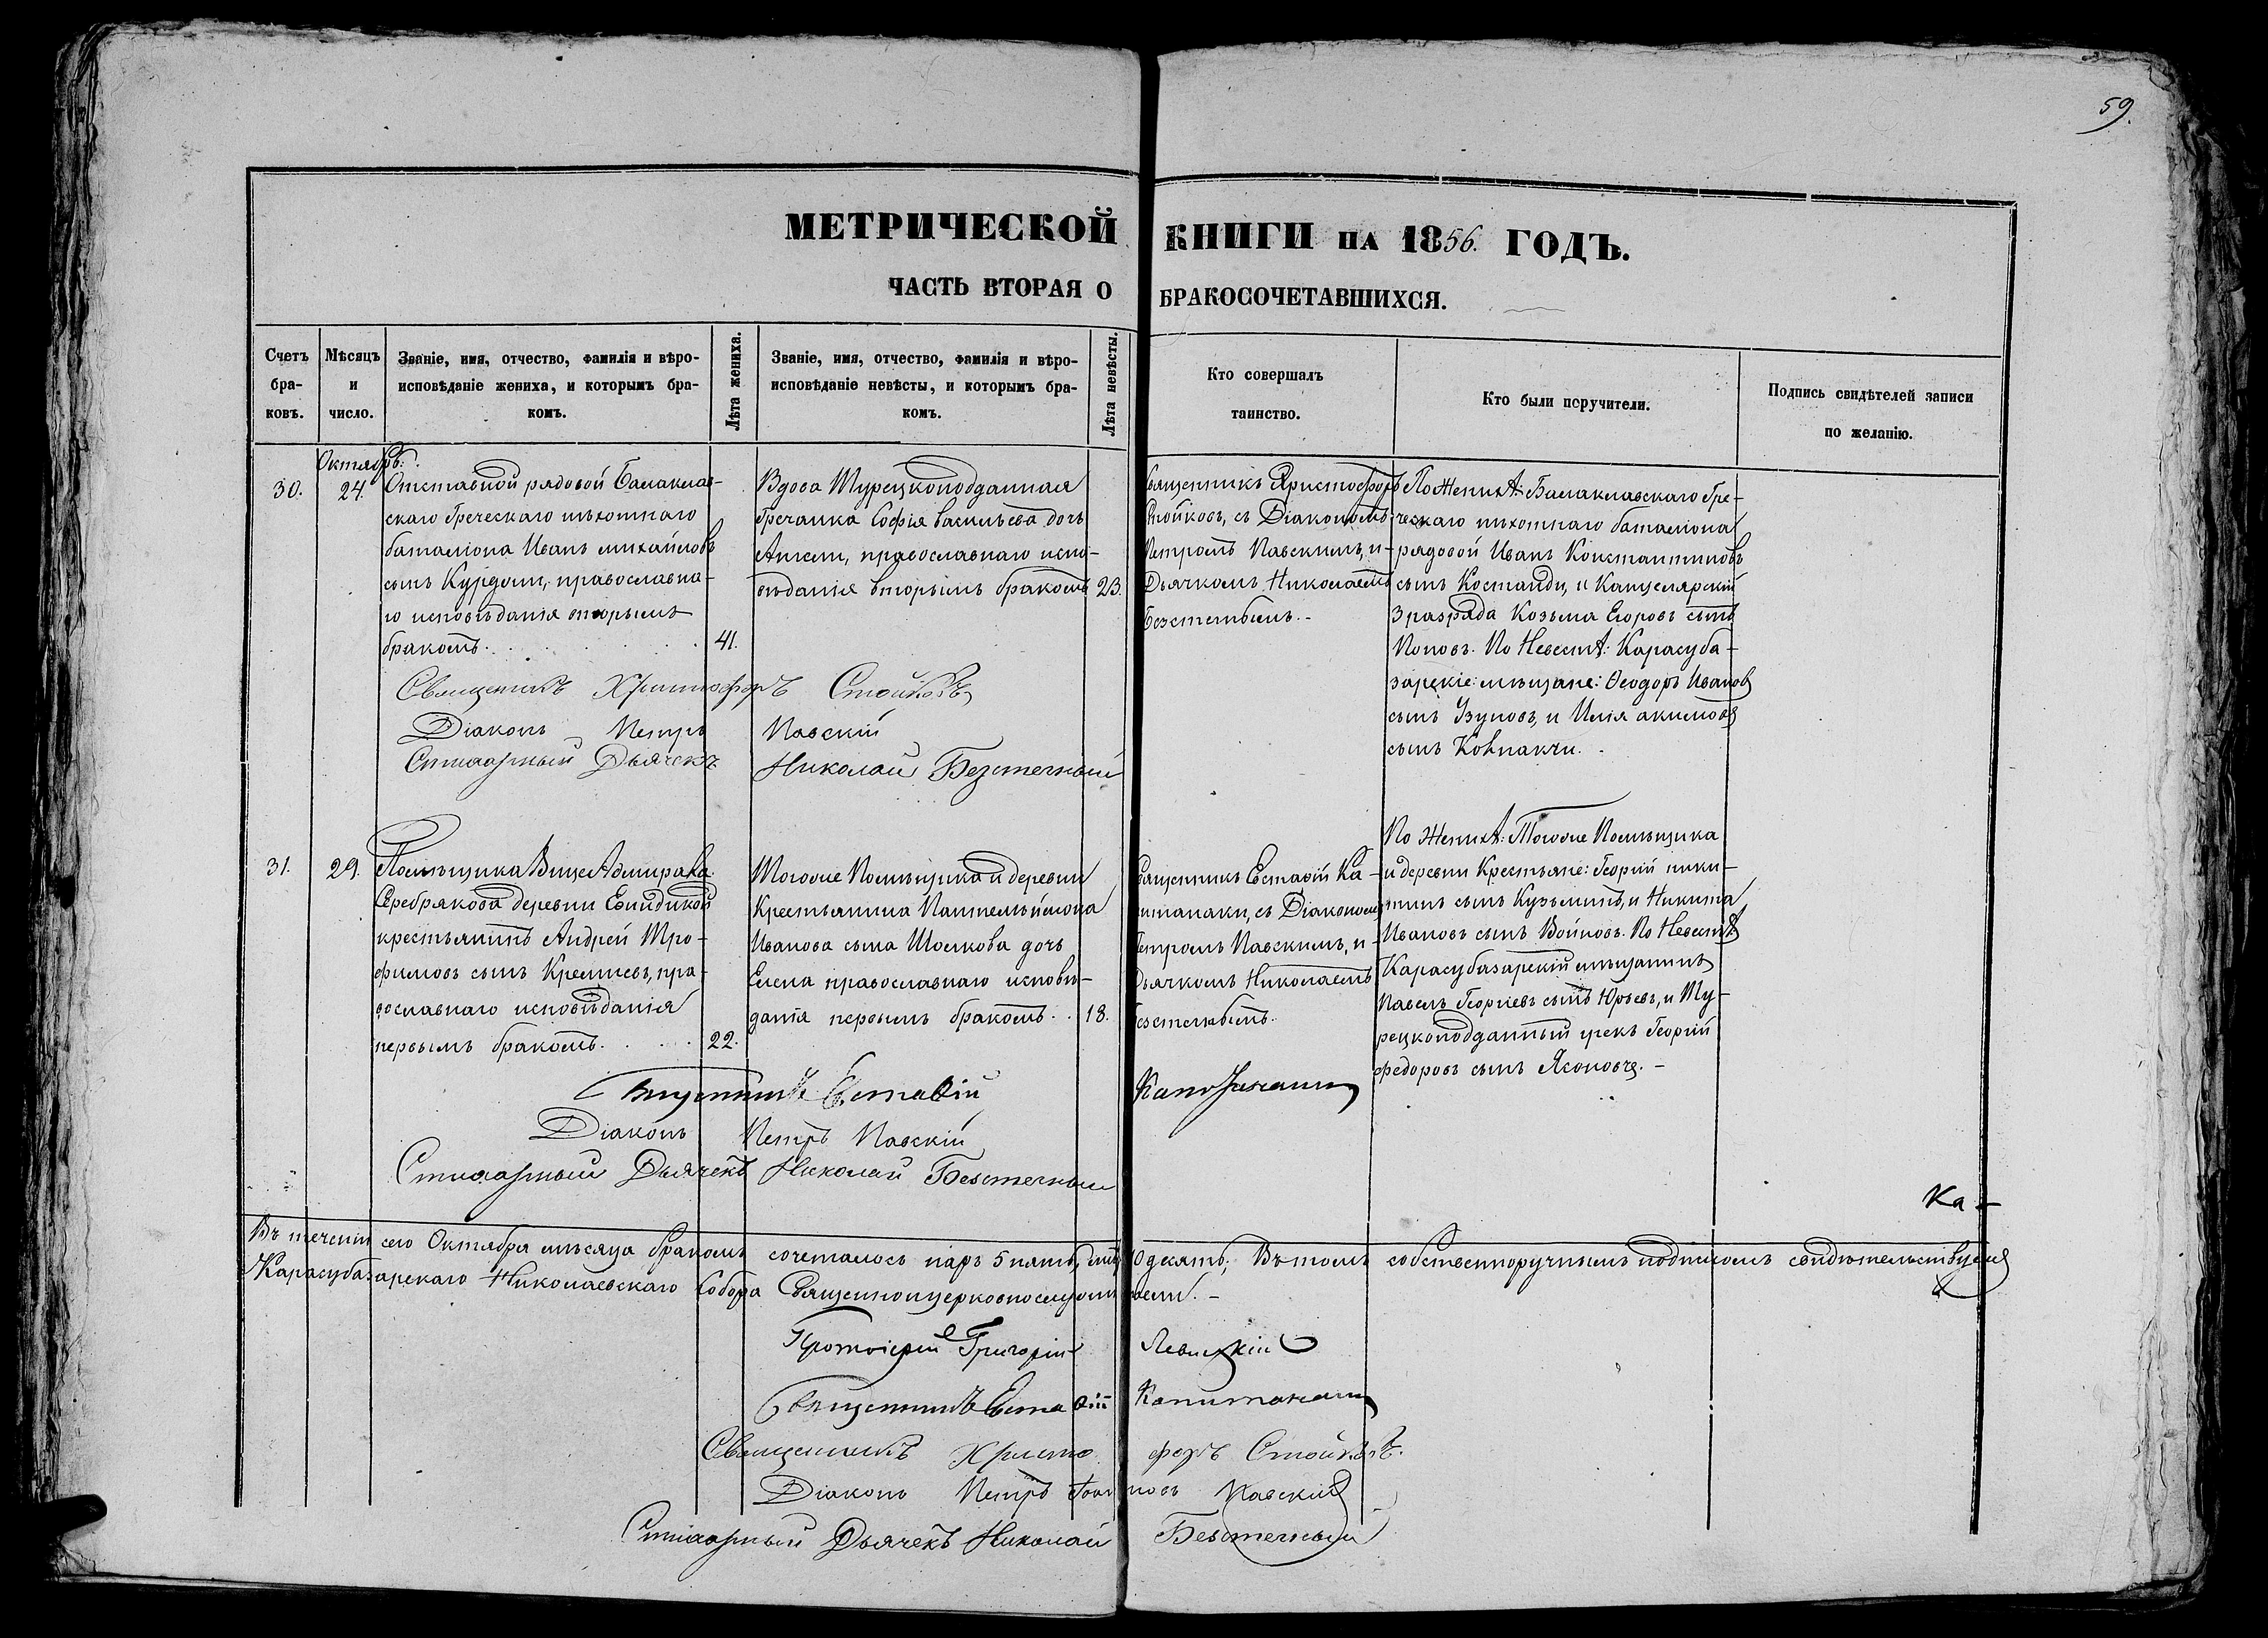 59.
МЕТРИЧЕСКОЙ КНИГИ НА 1856. ГОДЪ.
ЧАСТЬ ВТОРАЯ О БРАКОСОЧЕТАВШИХСЯ.
Счетъ
бра-
ковъ.
Мѣсяцъ
и
число.
Званіе, имя, отчество, фамилія и вѣро-
исповѣданіе жениха, и которымъ бра-
комъ.
Лѣта жениха.
Званіе, имя, отчество, фамилія и вѣро-
исповѣданіе невѣсты, и которымъ бра-
комъ.
Лѣта невѣсты.
Кто совершалъ
таинство.
Кто были поручители.
Подпись свидѣтелей записи
по желанію.
Октябрь.
30.
24.
Отставной рядовой Балаклав-
скаго Греческаго пѣхотнаго
баталіона Иванъ михайловъ
сынъ Курдогли, православна-
го исповѣданія вторымъ
бракомъ.
41.
Вдова Турецкоподданная
Гречанка Софія васильева дочь
православнаго испо-
вѣданія вторымъ бракомъ
23.
Священникъ Христофоръ
Стойковъ, съ Діакономъ
Петромъ Павскимъ, и
Дьячкомъ Николаемъ
По ЖенихѢ: Балаклавскаго Гре-
ческаго пѣхотнаго баталіона
рядовой Иванъ Константиновъ
сынъ Костанди, и Канцелярскій
3 разряда Козьма Егоровъ сынъ
Поповъ. По НевестѢ: Карасуба-
зарскіе: мѣщане: Ѳеодоръ Ивановъ
сынъ Узуновъ, и Илія акимовъ
сынъ Ковпакчи.
Священникъ Христофоръ Стойковъ
Діаконъ Петръ Павскій
Стихарный Дьячекъ Николай Безстечный
31.
29.
Помѣщика ВицеАдмирала
Серебрякова деревни
крестьянинъ Андрей Тро-
фимовъ сынъ Кремневъ, пра-
вославнаго исповѣданія
первымъ бракомъ.
22.
Тогоже Помѣщика и деревни
Крестьянина Пантелѣймона
Иванова сына дочь
Елена православнаго исповѣ-
данія первымъ бракомъ.
18.
Священникъ Евстафій Ка-
питанаки, съ Діакономъ
Петромъ Павскимъ, и
Дьячкомъ Николаемъ
По ЖенихѢ: Тогоже Помѣщика
и деревни Крестьяне: Георгій ники-
тинъ сынъ Кузьминъ, и Никита
Ивановъ сынъ Войновъ. По НевестѢ
Карасубазарскій мѣщанинъ
Павелъ Георгіевъ сынъ Юрьевъ, и Ту-
рецкоподданный грекъ Георгій
федоровъ сынъ
Священникъ Евстафій Капитанаки
Діаконъ Петръ Павскій
Стихарный Дьячекъ Николай Безстечный
Ка-
Въ теченіи сего Октября мѣсяца бракомъ сочеталось паръ 5 пять, лицъ 10 десять; Въ томъ собственноручнымъ подписомъ свидѣтельствуемъ
Карасубазарскаго Николаевскаго Собора Священноицерковнослужители.
Протоіерей Григорій Левицкій
Священникъ Евстафій Капитанаки
Священникъ Христофоръ Стойковъ.
Діаконъ Петръ Іоанновъ Павскій
Стихарный Дьячекъ Николай Безстечный